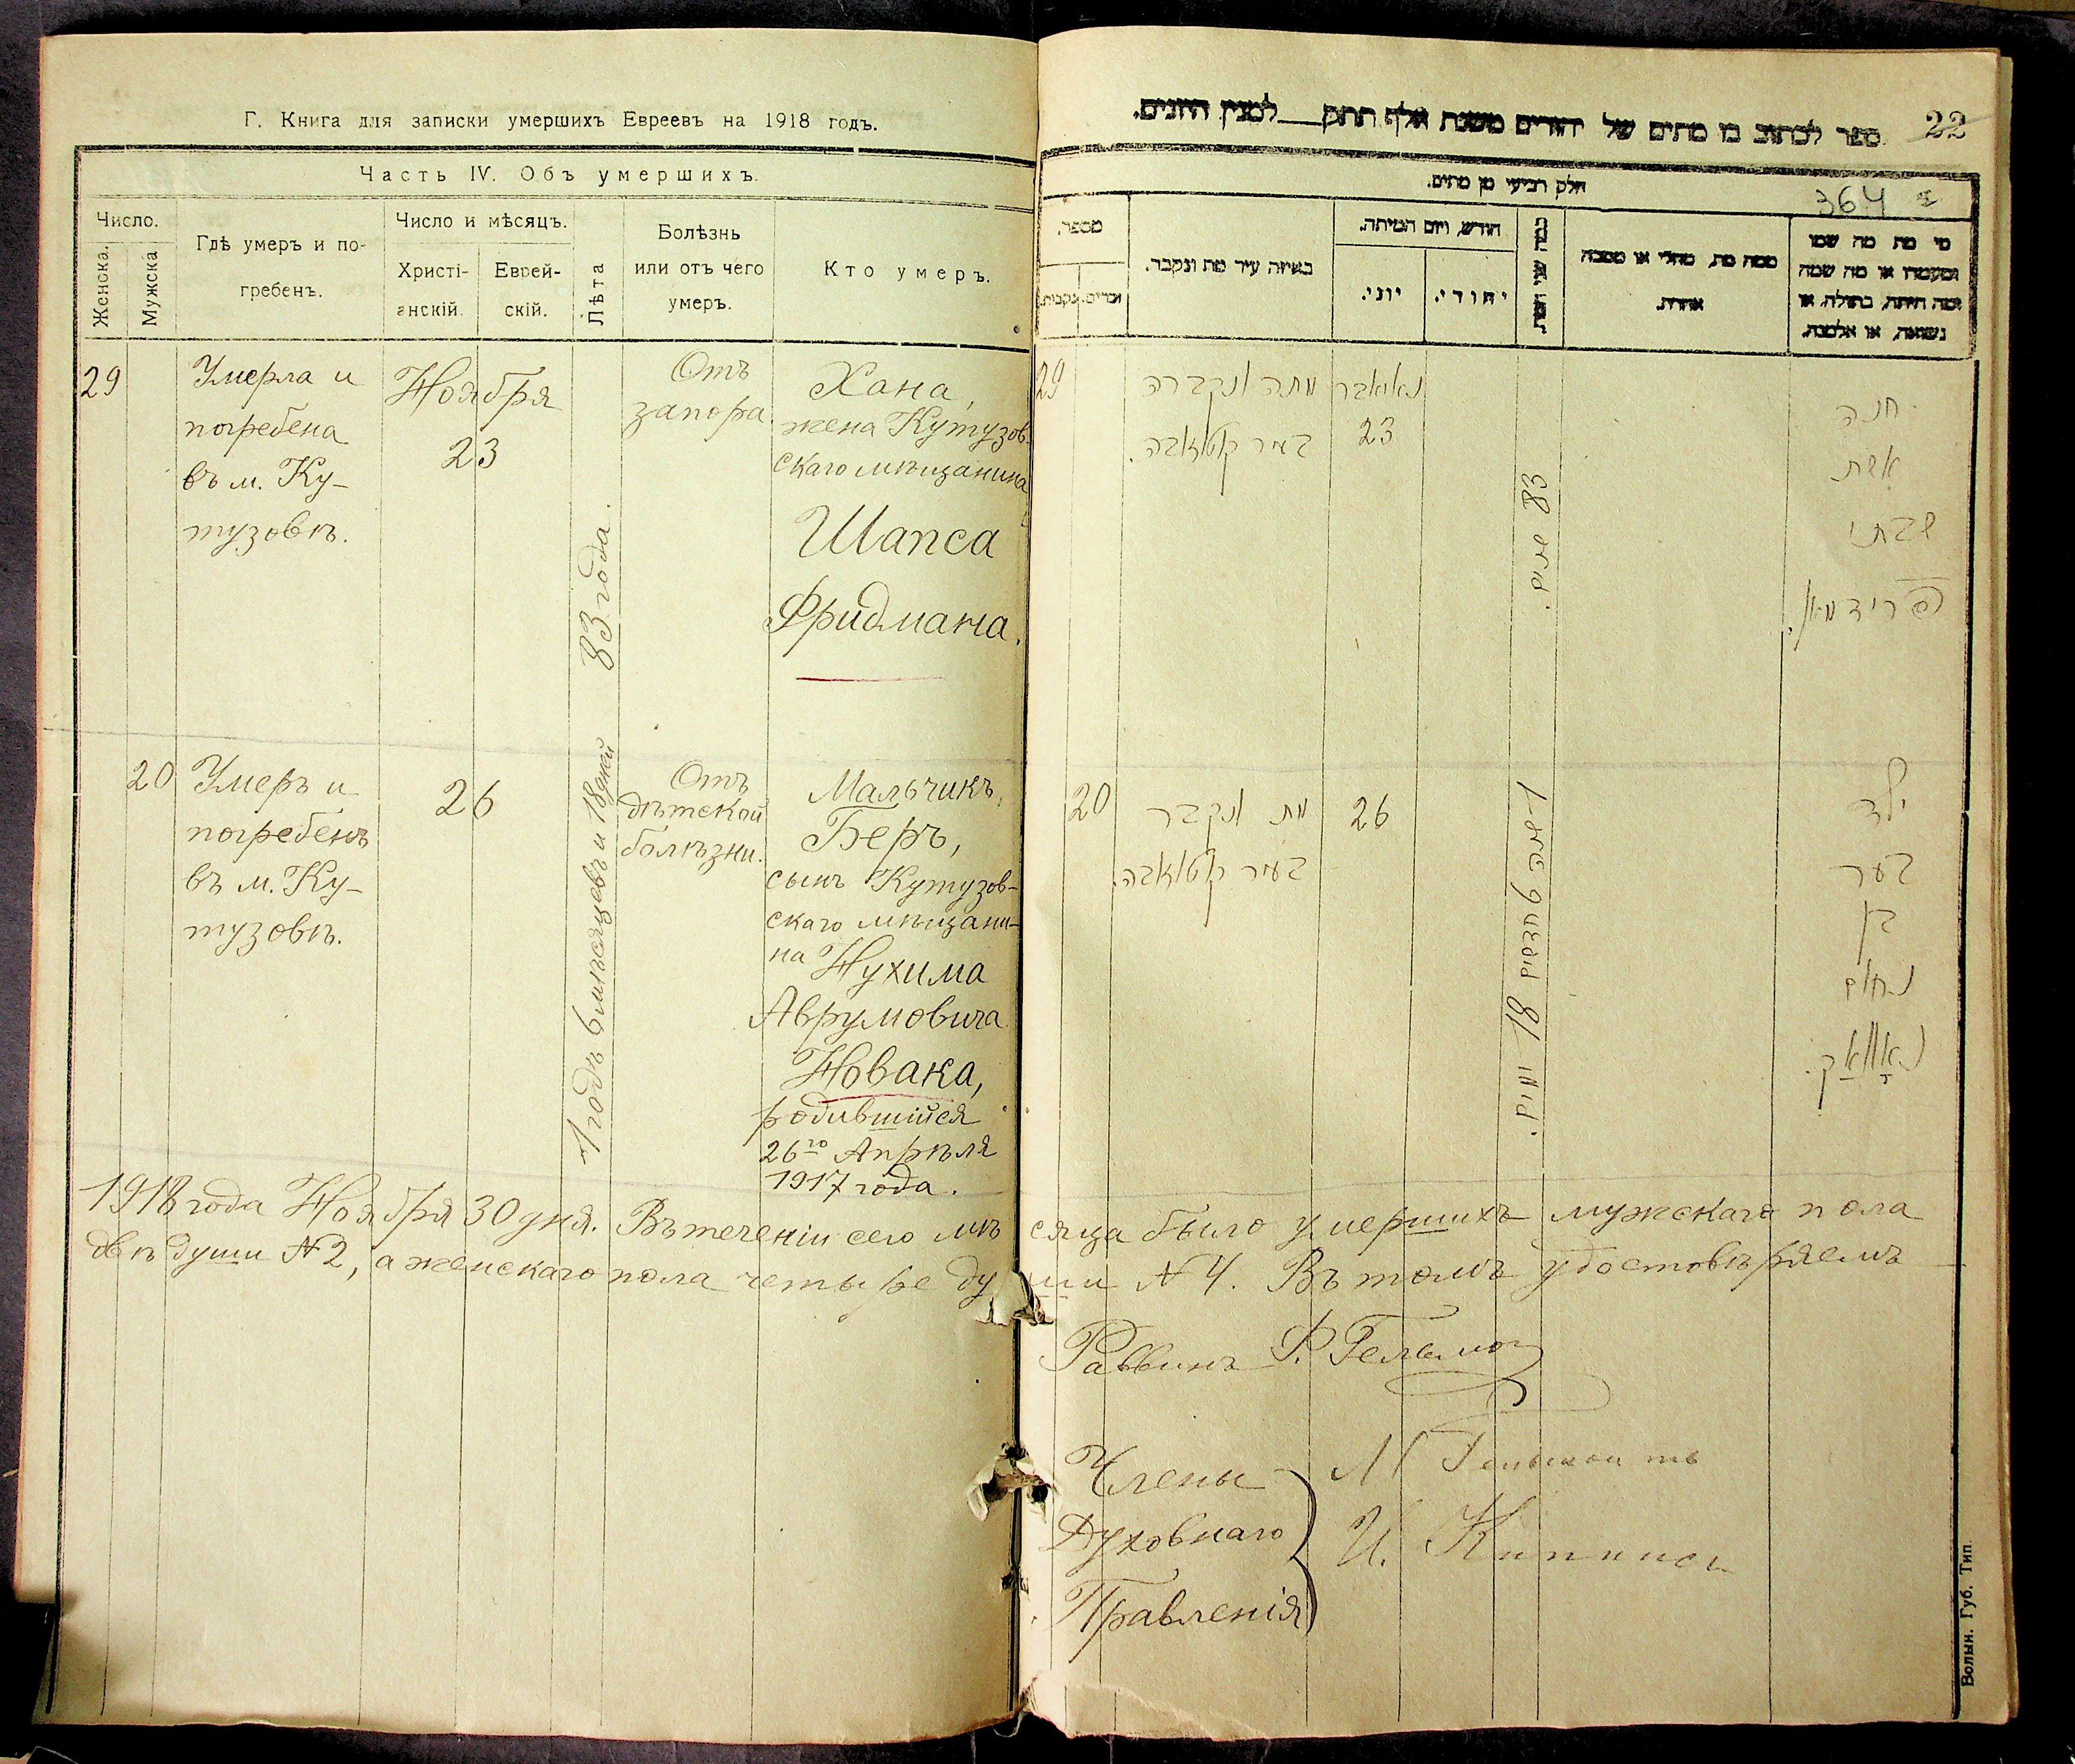 Г. Книга для записки умершихъ Евреевъ на 1918 годъ.
Часть IV. Объ умершихъ.
Число.
Женска.
Мужска
Гдѣ умеръ и по-
гребенъ.
Число и мѣсяцъ.
Христі-
анскій.
Еврей-
скій.
Лѣта
Болѣзнь
или отъ чего
умеръ.
Кто умеръ.
29
Умерла и
погребена
въ м. Ку-
тузовкѣ.
Ноября
23
83 года.
Отъ
запора
Хана,
жена Кутузов-
скаго мѣщанина
Шапса
Фридмана.
20
Умеръ и
погребенъ
въ м. Ку-
тузовкѣ.
26
1 годъ 6 мѣсяцевъ и 18 дней
Отъ
дѣтской
болѣзни.
Мальчикъ,
Беръ,
сынъ Кутузов-
скаго мѣщани-
на Нухима
Аврумовича
Новака,
родившійся
26го Апрѣля
1917 года.
22
ספר לכתוב בו מתים של יהודים משנת אלף תתק___למנין היונים.
חלק רביעי מן מתים.
364
מספר.
זכרים.
נקבות.
באיזה עיר מת ונקבר.
חודש, ויום המיתה.
יוני.
יהודי.
כמה שני המת.
ממה מת, מחלי או מסבה
אחרת.
מי מת מה שמו
ומעמדו או מה שמה
ומה היתה, בתולה, או
נשואה, או אלמנה.
29
מתה ונקברה
בעיר קוטוזובה.
נאיאבר
23
83 שנים.
חנה
אשת
שבתי
פרידמאן.
20
מת ונקבר
בעיר קוטוזובה.
26
1 שנה 6 חדשים 18 ימים.
ילד
בער
בן
נחום
נאוואק.
1918 года Ноября 30 дня. Въ теченіи сего мѣсяца было умершихъ мужскаго пола
двѣ души № 2, а женскаго пола четыре души № 4. Въ томъ удостовѣряемъ
Раввинъ Ф.
Члены
Духовнаго
Правленія
М
И.
Волын. Губ. Тип.